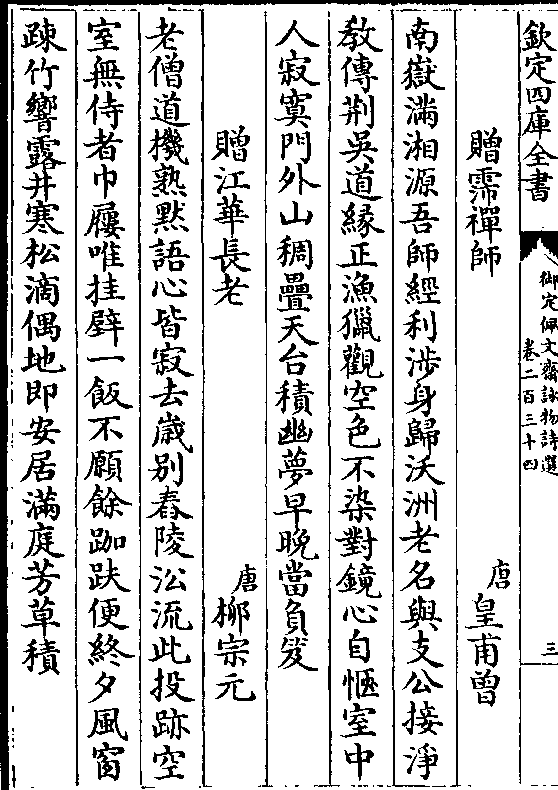 欽定四庫全書
御定佩文齋詠物詩選
卷二百三十四
三
贈霈禪師
唐 皇甫曾
南嶽滿湘源吾師經利涉身歸沃洲老名與支公接淨
教傳荆吳道緣正漁獵觀空色不染對鏡心自愜室中
人寂寞門外山稠疊天台積幽夢早晚當負笈
贈江華長老
唐 柳宗元
老僧道機熟默語心皆寂去嵗别舂陵㳂流此投跡空
室無侍者巾屨唯挂壁一飯不願餘跏趺便終夕風窗
疎竹響露井寒松滴偶地即安居滿庭芳草積